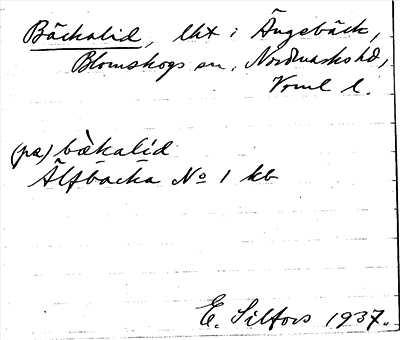 Bäckalid, lht i Ängebäck,
Blomskogs sn, Nordmarks hd,
Vrml l.
(pa) bä̀kalíd
Älfbacka No 1 kb
E. Silfors 1937.